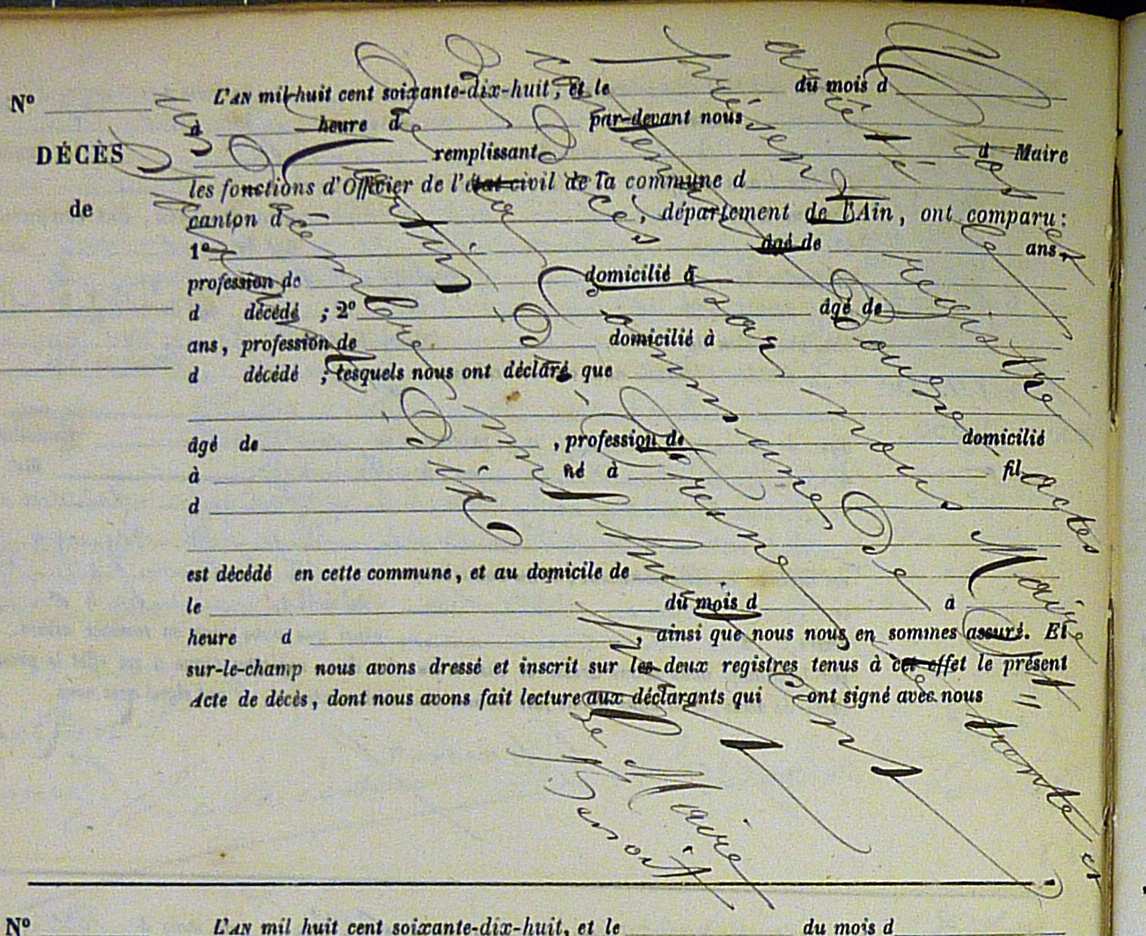 N° L'AN mil huit cent soixante-dix-huit, et le du mois d
à heure d par-devant nous
DÉCÈS remplissant d Maire
de les fonctions d'Officier de l'état-civil de la commune d
canton d , département de l'Ain, ont comparu:
1° âgé de ans,
profession de domicilié à
d décédé ; 2° âgé de
ans, profession de domicilié à
d décédé ; lesquels nous ont déclaré que
âgé de , profession de domicilié
à né à fil
d
est décédé en cette commune, et au domicile de
le du mois d à
heure d , ainsi que nous nous en sommes assuré. Et
sur-le-champ nous avons dressé et inscrit sur les deux registres tenus à cet effet le présent
Acte de décès, dont nous avons fait lecture aux déclarants qui ont signé avec nous
Clos et
arrêté le
présent registre
contenant Douze actes
De Décès par nous Maire
De la Commune De St =
Martin - Du - Fresne le trente et
un Décembre mil huit cent
Dix huit
Le Maire
Benoit
N° L'AN mil huit cent soixante-dix-huit, et le du mois d